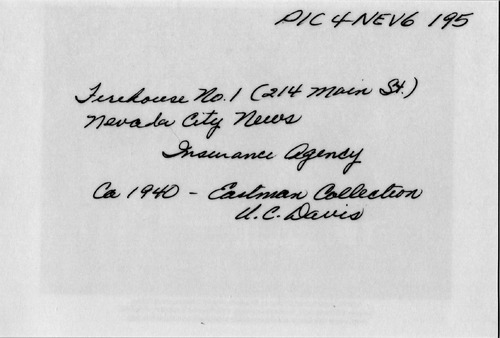 PIC 4 NEV6 195
Firehouse No. 1 (214 Main St.)
Nevada City News
Insurance Agency
Ca 1940 - Eastman Collection
U.C. Davis